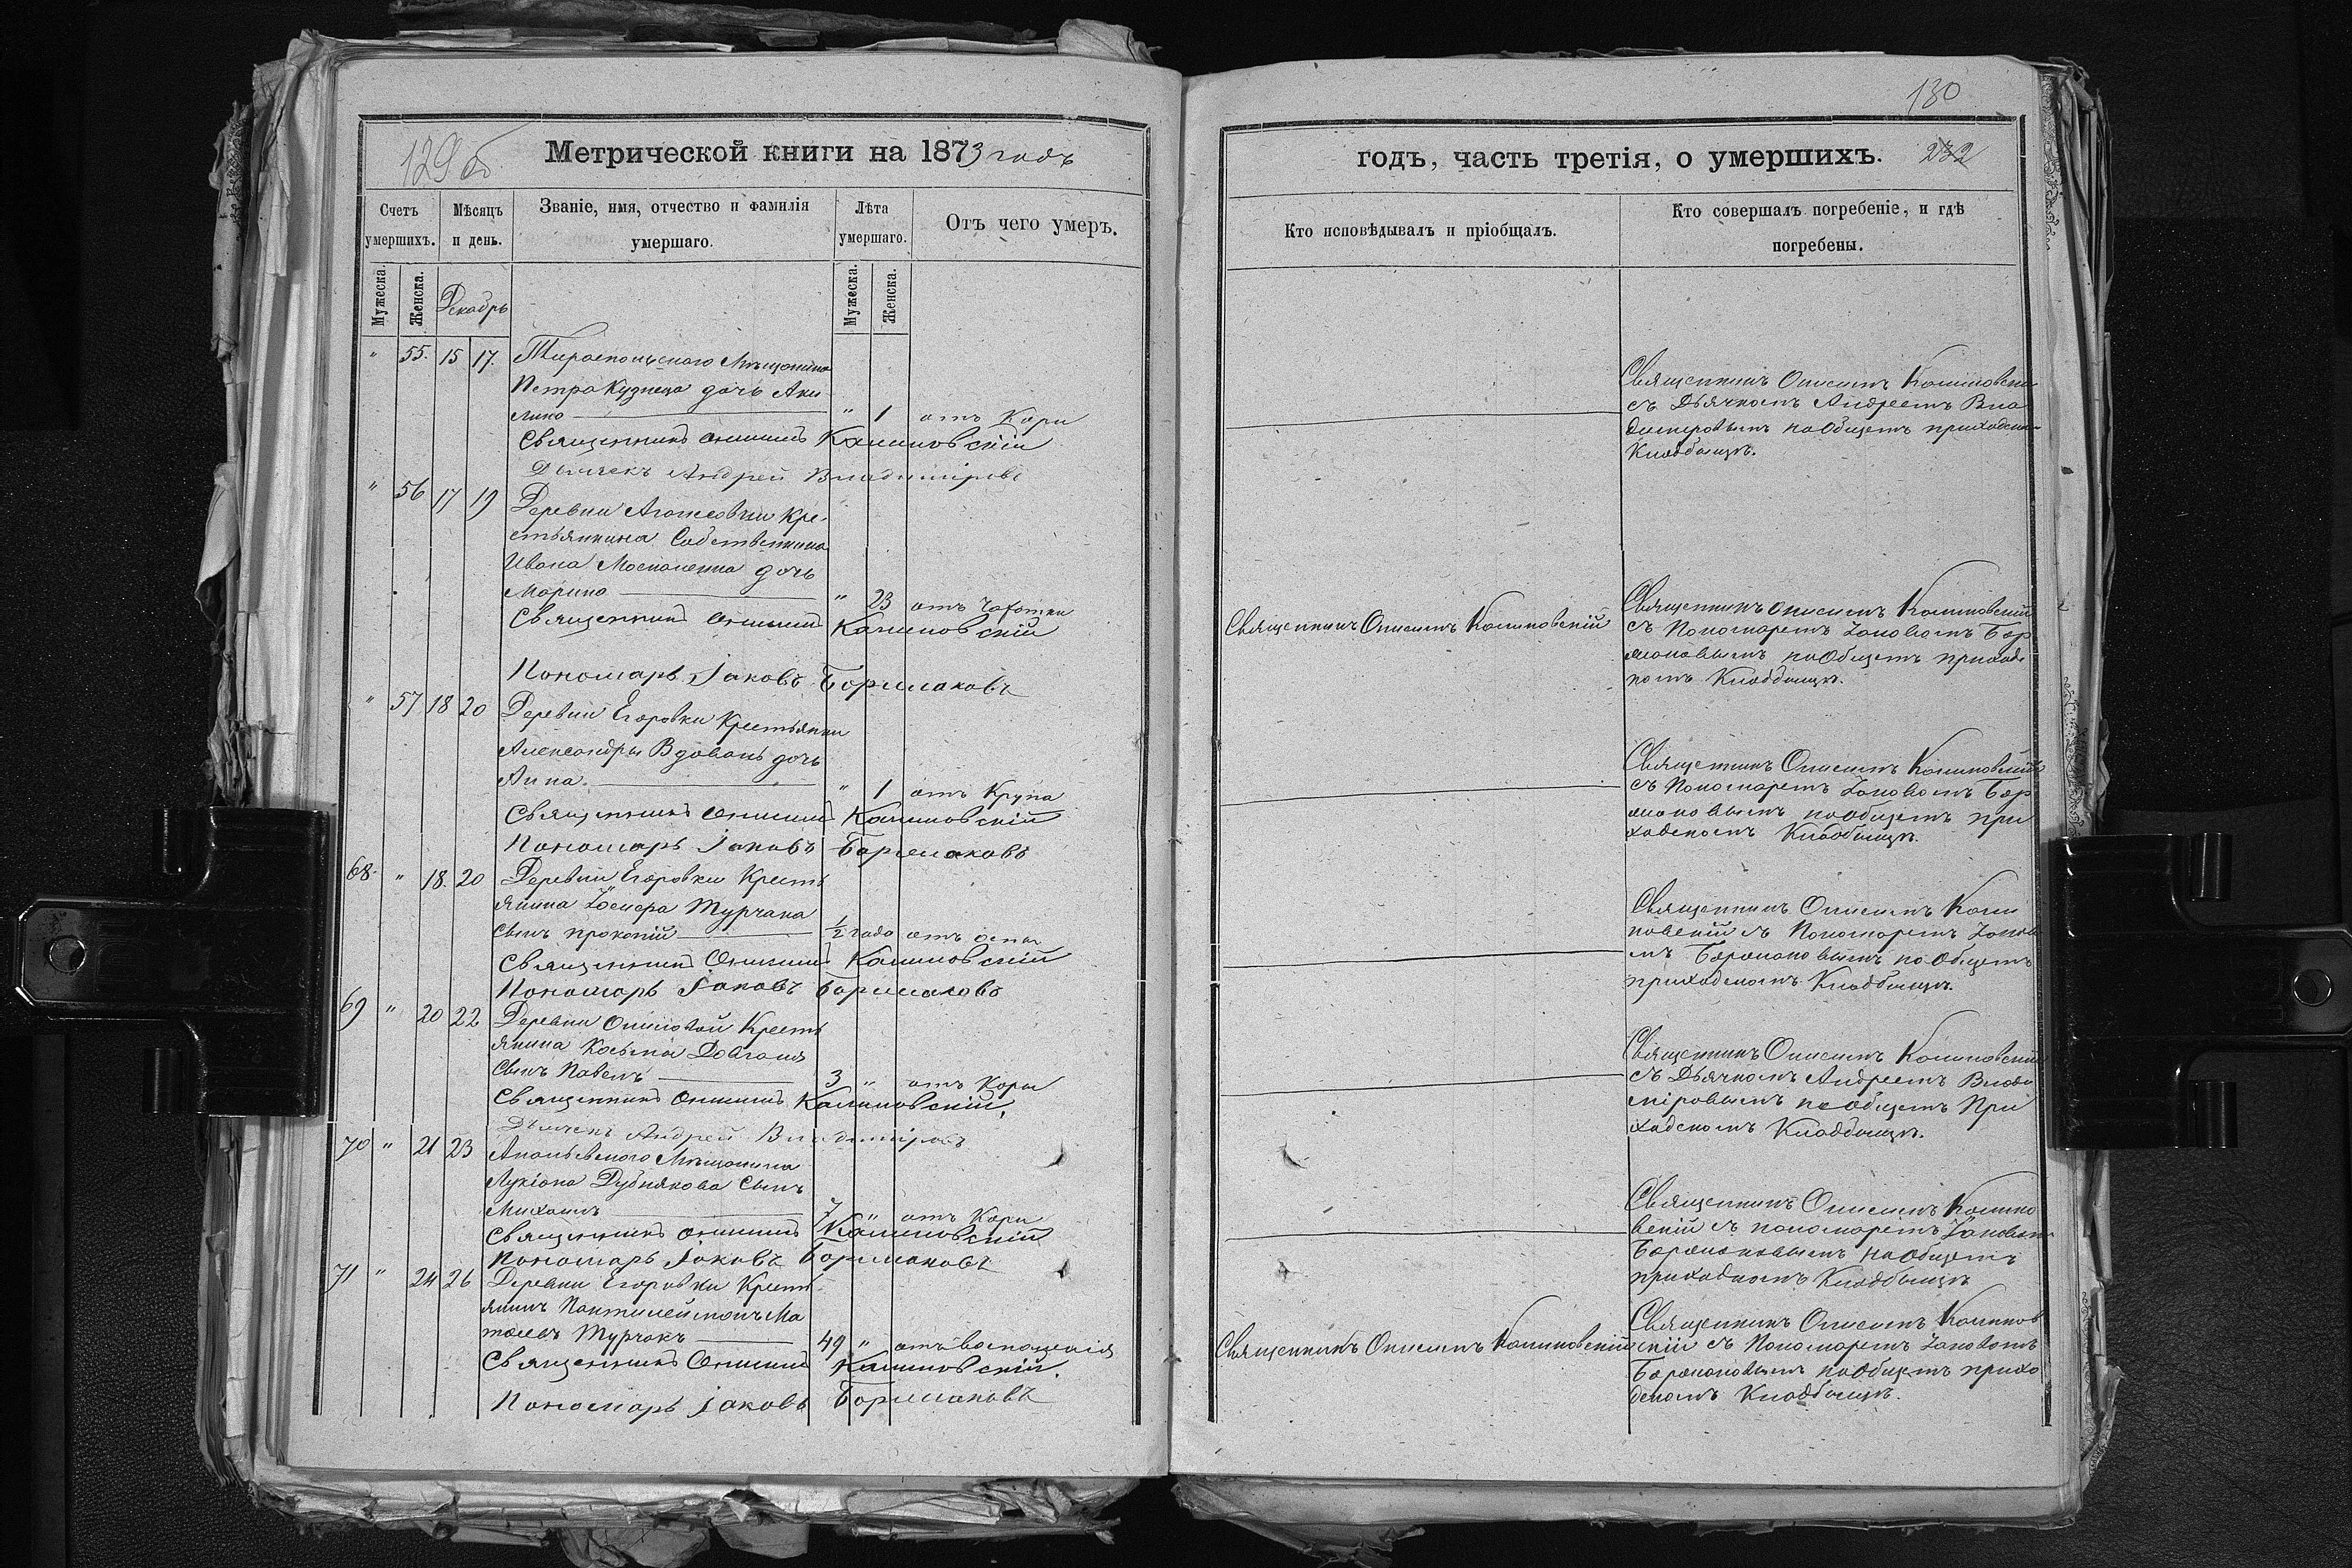 129об
Метрической книги на 1873 годъ
Счетъ умершихъ.
Мѣсяцъ и день.
Званіе, имя, отчество и фамилія умершаго.
Лѣта умершаго.
Отъ чего умеръ.
Мужеска.
Женска.
Декабрь
Мужеска.
Женска.
" 55. 15 17. Тираспольскаго Мѣщанина
Петра Кузнеца дочь Аки
лина " 1 отъ Кори
Священникъ Онисимъ Калиновскій
Дьячекъ Андрей Владиміровъ
" 56 17 19 Деревни Агафеовки Кре-
стьянина Собственника
Ивана Москаленка дочь
Марина " 23 отъ Чахотки
Священникъ Онисимъ Калиновскій
Пономарь Іаковъ
" 57 18 20 Деревни Егоровки Крестьянки
Александры Вдовань дочь
Анна. " 1 отъ Крупа
Священникъ Онисимъ Калиновскій
Пономарь Іаковъ
68. " 18. 20 Деревни Егоровки Кресть
янина Турчака
сынъ прокопій 1/2 года отъ оспы
Священникъ Онисимъ Калиновскій
Пономарь Іаковъ
69 " 20 22 Деревни Кресть
янина Косьмы Довганя
Сынъ Павелъ 3 " отъ Кори
Священникъ Онисимъ Калиновскій.
Дьячекъ Андрей Владиміровъ
70 " 21 23 Ананьевского Мѣщанина
Лукіана Дубнякова Сынъ
Михаилъ 7 " отъ Кори
Священникъ Онисимъ Калиновскій
Пономарь Іаковъ
71 " 24 26 Деревни Егоровки Кресть
янинъ Пантилеймонъ Ма
Турчакъ 49 " отъ воспаленія
Священникъ Онисимъ Калиновскій.
Пономарь Іаковъ
130
годъ, часть третія, о умершихъ. 232
Кто исповѣдывалъ и пріобщалъ.
Кто совершалъ погребеніе, и гдѣ погребены.
Священникъ Онисимъ Калиновскій
съ Дьячкомъ Андреемъ Вла
димеровымъ на Общемъ приходском
Кладбищѣ.
Священникъ Онисимъ Калиновскій
Священникъ Онисимъ Калиновскій
съ Пономаремъ Іаковомъ
на Общемъ приход
номъ Кладбищѣ.
Священникъ Онисимъ Калиновскій
съ Пономаремъ Іаковомъ
на общемъ при
ходскомъ Кладбищѣ.
Священникъ Онисимъ Кали
новскій съ Пономаремъ Іаково
мъ на Общемъ
приходскомъ Кладбищѣ.
Священникъ Онисимъ Калиновскій
съ Дьячкомъ Андреемъ Влади
міровымъ на общемъ При
ходскомъ Кладбищѣ.
Священникъ Онисимъ Калино
вскій съ пономаремъ Іаковом
на общемъ
приходномъ Кладбищѣ
Священникъ Онисимъ Калиновскій
Священникъ Онисимъ Калинов
скій съ Пономаремъ Іаковомъ
на Общемъ прихо
дскомъ Кладбищѣ.